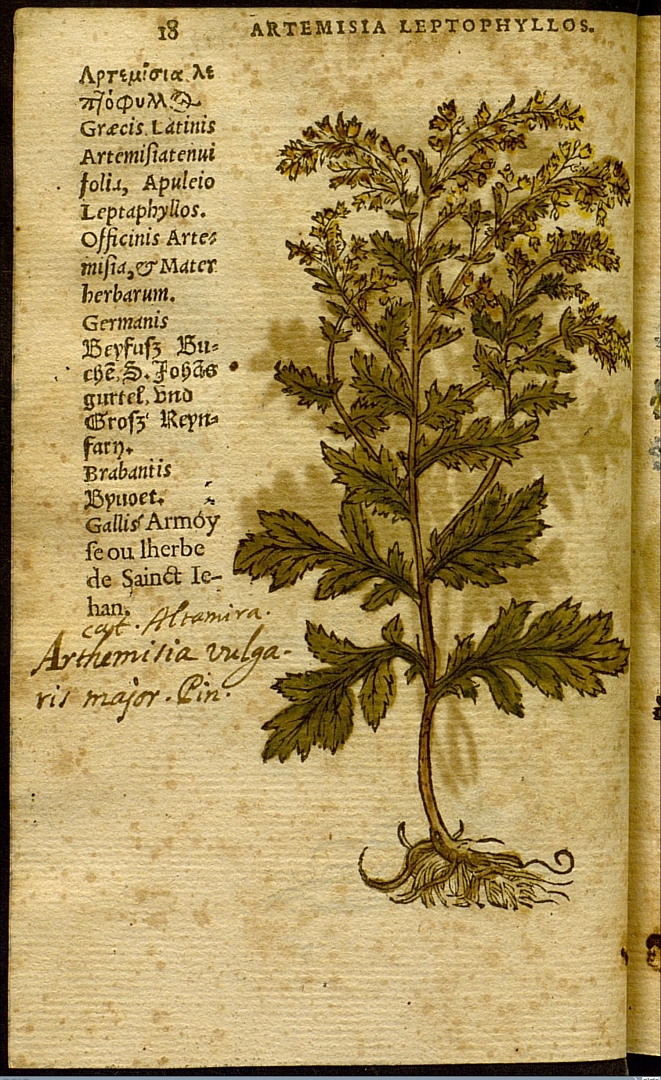 18 ARTEMISIA LEPTOPHYLLOS.
Αρτεμισια λε
πλόφυλλ
Græcis Latinis
Artemiſiatenui
folia, Apuleio
Leptaphyllos.
Officinis Arte⸗
miſia, & Mater
herbarum.
Germanis
Beyfuſz Bu⸗
chē, S. Johãs
gurtel, vnd
Groſz Reyn⸗
farn.
Brabantis
Byuoet.
Gallis Armoy
ſe ou lherbe
de Sainct Ie-
han.
cast. Altamira.
Arthemisia vulga-
ris major. Pin.